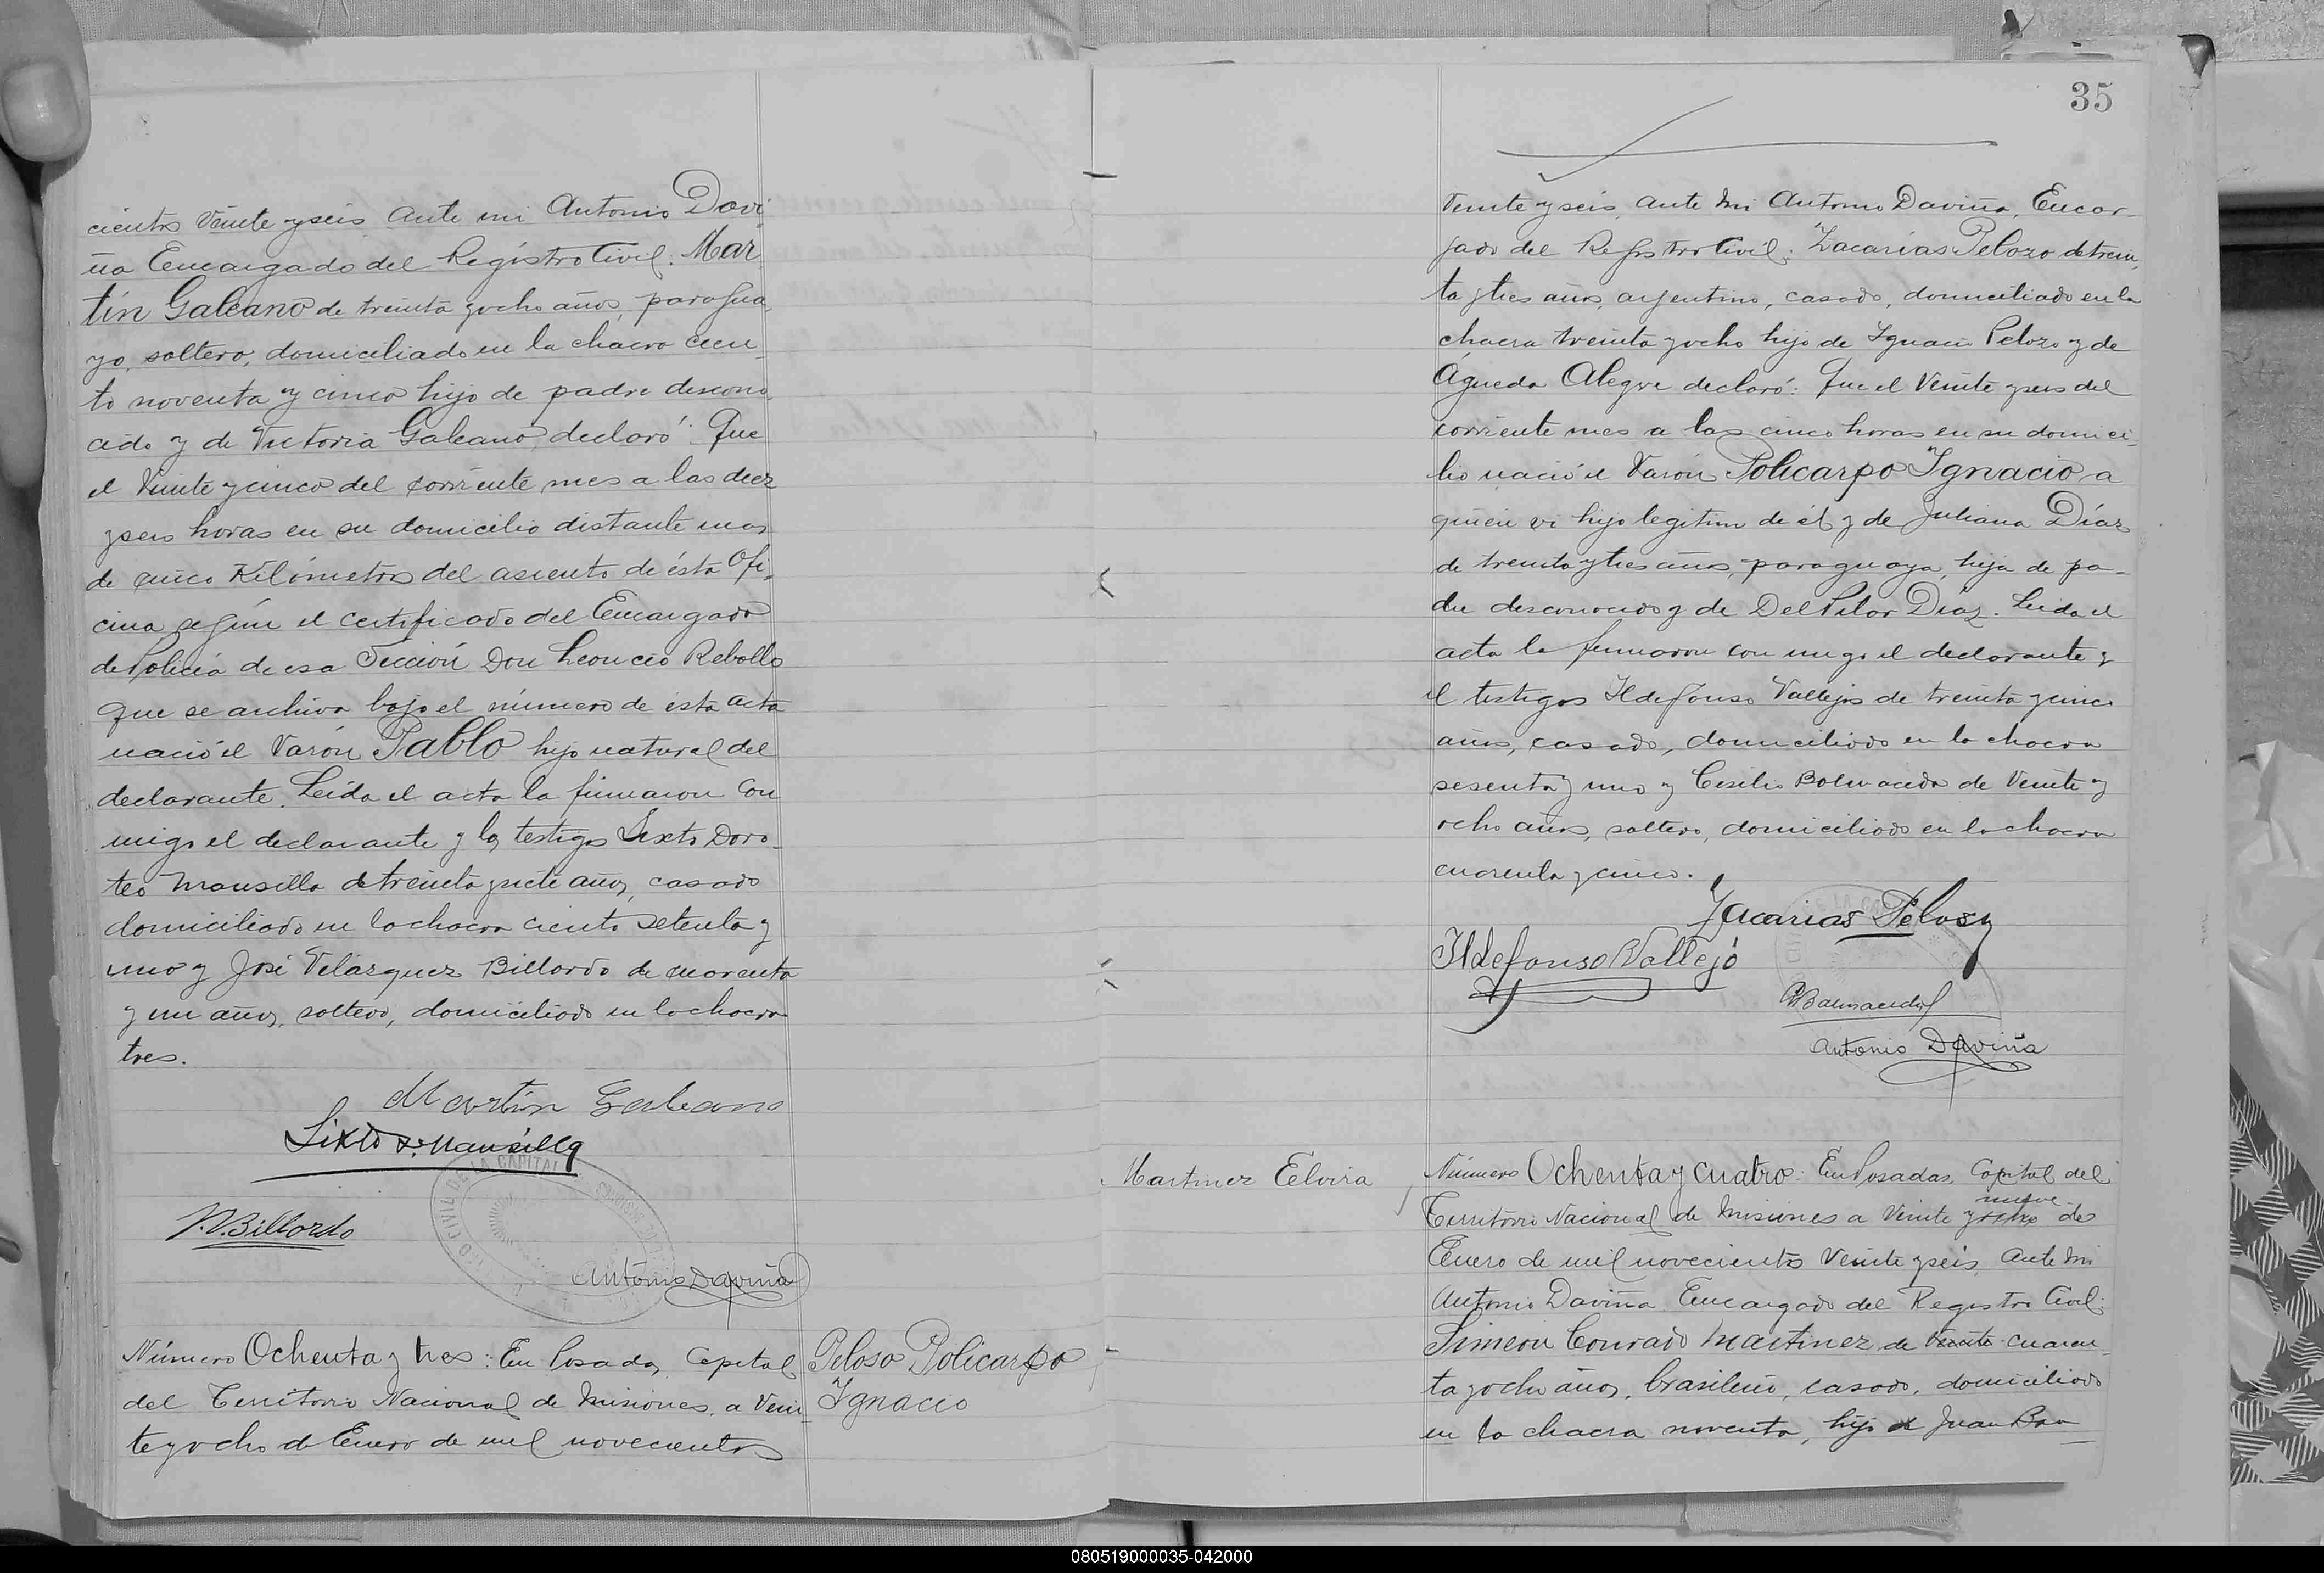 cientos Veinte y seis ante mi Antonio Davi-
ña Encargado del Registro Civil: Mar-
tín Galeano de treinta y ocho años, paragua-
yo, soltero, domiciliado en la chacra cien-
to noventa y cinco hijo de padre descono-
cido y de Victoria Galeano, declaró: Que
el Veinte y cinco del corriente mes a las diez
y seis horas en su domicilio distante mas
de cinco Kilómetros del asiento de ésta Ofi-
cina, según el certificado del Encargado
de Policía de esa Sección Don Leoncio Rebollo
que se archiva bajo el número de esta acta
nació el Varón Pablo hijo natural del
declarante. Leída el acta la firmaron con
migo el declarante y los testigos Sixto Doro-
teo Mansilla de treinta y siete años, casado
domiciliado en la chacra ciento setenta y
uno y José Velázquez Billordo de cuarenta
y un años, soltero, domiciliado en la chacra
tres.
Martín Galeano
Sixto D. Mansilla
V. Billordo
REGISTRO CIVIL DE LA CAPITAL
MISIONES
Antonio Daviña
Número Ochenta y tres: En Posadas, Capital
del Territorio Nacional de Misiones, a Vein-
te y ocho de Enero de mil novecientos
Peloso Policarpo
Ignacio
35
Veinte y seis, ante mi Antonio Daviña, Encar-
gado del Registro Civil: Zacarías Pelozo de trein-
ta y tres años, argentino, casado, domiciliado en la
chacra treinta y ocho hijo de Ignacio Pelozo y de
Águeda Alegre declaró: Que el Veinte y seis del
corriente mes a las cinco horas en su domici-
lio nació el Varón Policarpo Ignacio a
quien vi hijo legitimo de él y de Juliana Díaz
de treinta y tres años, paraguaya, hija de pa-
dre desconocido y de Del Pilar Díaz. Leida el
acta la firmaron con migo el declarante y
el testigos Ildefonso Vallejos de treinta y cinco
años, casado, domiciliado en la chacra
sesenta y uno y Cesilio Balmaceda de Veinte y
ocho años, soltero, domiciliado en la chacra
cuarenta y cinco.
Zacarias Peloso
Ildefonso Vallejo
Balmaceda
Antonio Daviña
Martinez Elvira
Número Ochenta y cuatro: En Posadas, Capital del
nueve
Territorio Nacional de Misiones a Veinte y ocho de
Enero de mil novecientos Veinte y seis, ante mi
Antonio Daviña Encargado del Registro Civil:
Simeon Conrado Martinez de Veinte cuaren-
ta y ocho años, brasileño, casado, domiciliado
en la chacra noventa, hijo de Juan Bau
080519000035-042000